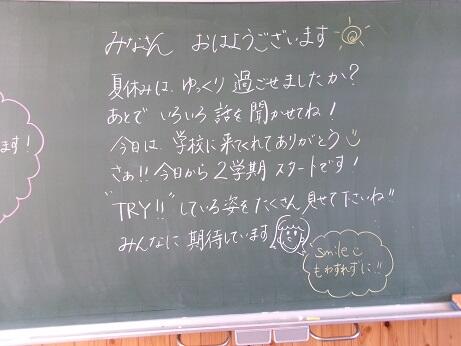 みなさん おはようございます
夏休みは、ゆっくり 過ごせましたか?
あとで いろいろ 話を聞かせてね!
今日は、学校に来てくれてありがとう
さぁ!!今日から 2学期 スタートです!
"TRY!!"している姿をたくさん見せて下さいね!!
みんなに 期待しています
smile
もわすれずに!!
ます!